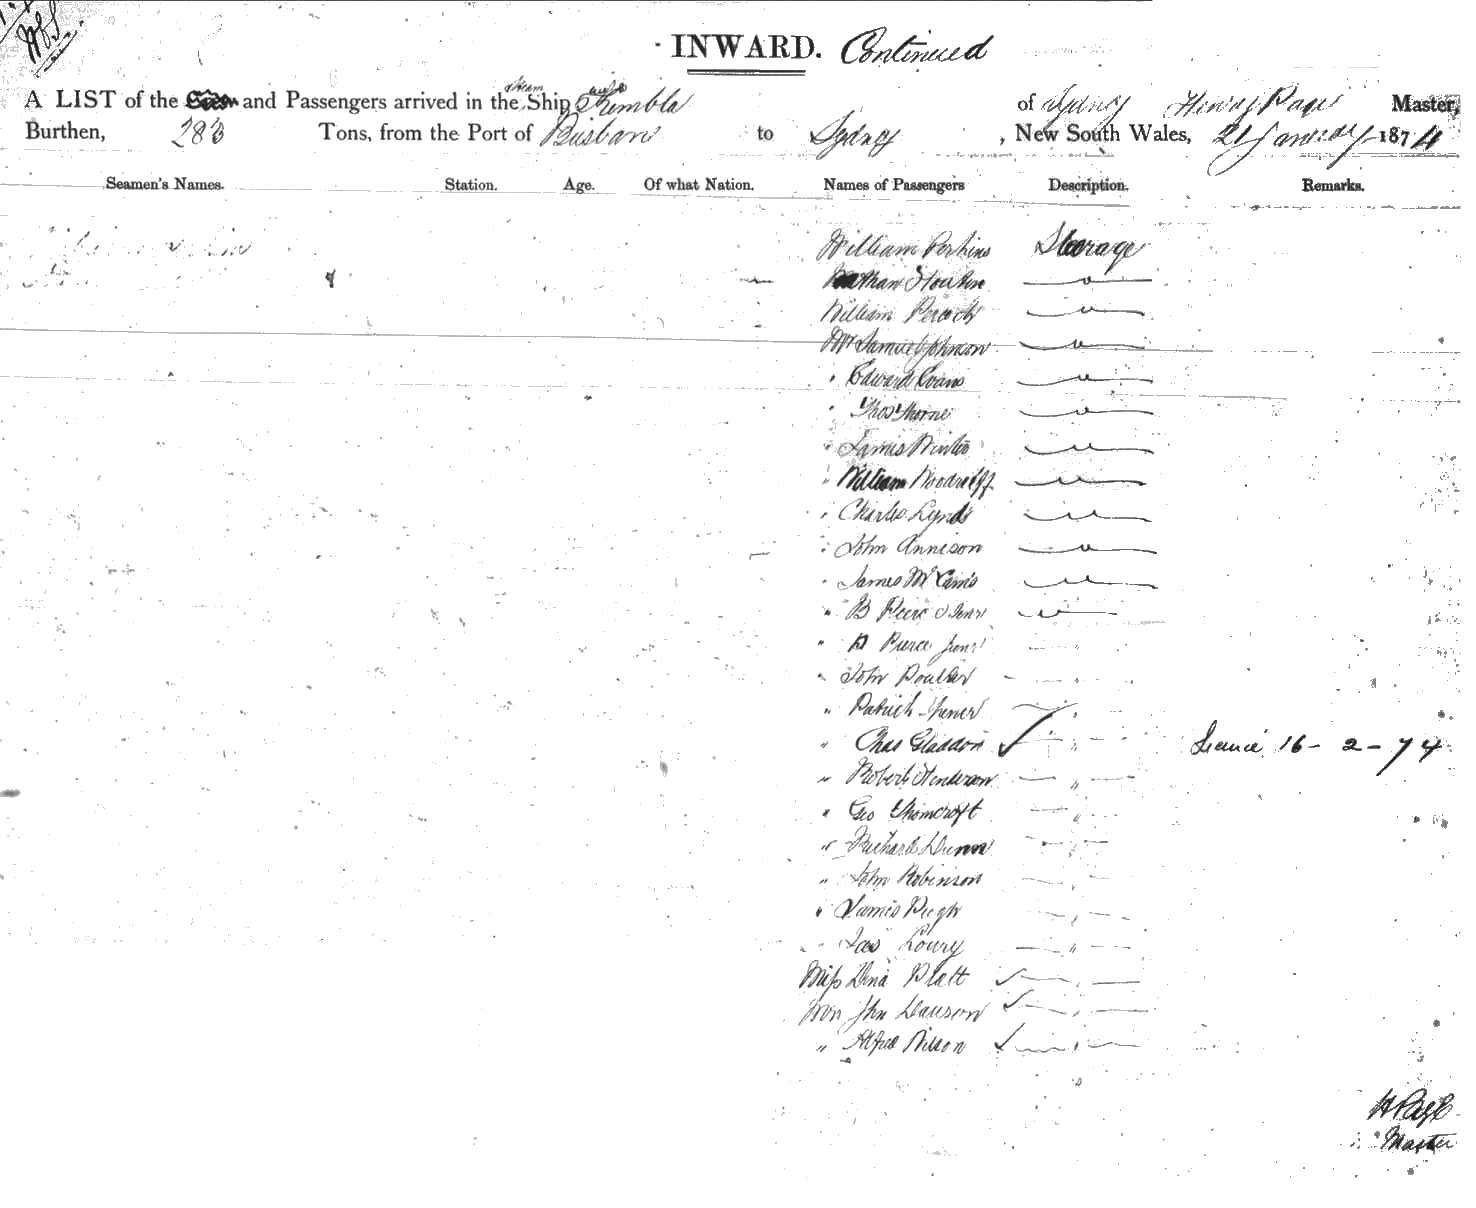 INWARD. Continued
A LIST of the and Passengers arrived in the Steam Ship Kembla of Sydney Henry Page Master,
Burthen, 283 Tons, from the Port of Brisbane to Sydney, New South Wales, 21 January 1874
Seamen's Names. Station. Age. Of what Nation. Names of Passengers Description. Remarks.
William Perkins Steerage
Nathan "
William "
Mr Samuel Johnson "
" Edward Evans "
" Thos Thorne "
" James Winter "
" William Woodruff "
" Charles Lynds "
" John Annison "
" James "
" B Senr "
" Pierce Junr "
" John Poulter "
" Patrick "
" Chas Gladdon " 16-2-74
" Robert Henderson "
" Geo Thorncroft "
" Richard Dunn "
" John Robinson "
" James Pugh "
" Jas Loury "
Miss Dina Platt "
Mr Jhn Dawson "
" Alfred Wilson "
H Page
Master